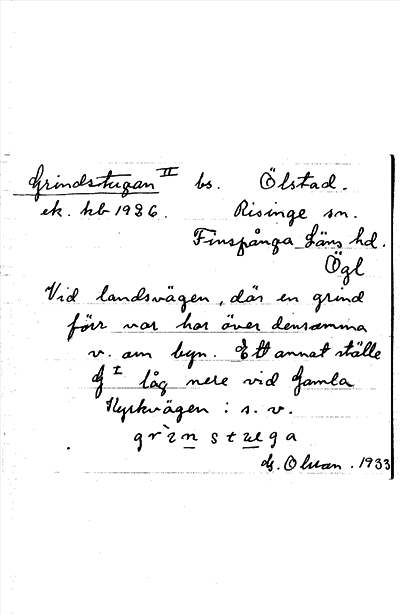 Grindstugan II bs. Ölstad.
ek. kb 1936. Risinge sn.
Finspånga Läns hd.
Ögl
Vid landsvägen, där en grind
förr var har över densamma
v. om byn. Ett annat ställe
G I låg nere vid Gamla
Kyrkvägen : s. v.
grìn stuga
Olsson. 1933